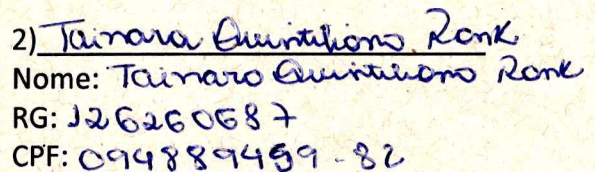 2) Tainara Quintiliano Rank
Nome: Tainara Quintiliano Rank
RG: 126260687
CPF: 094889459-82